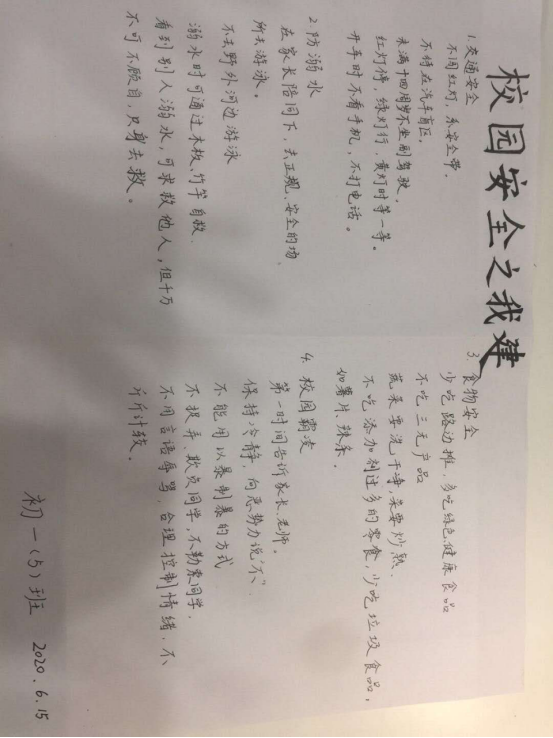 校园安全之我建
1.交通安全
不闯红灯,系安全带.
不待在汽车盲区.
未满十四周岁不坐副驾驶.
红灯停,绿灯行,黄灯时等一等。
开车时不看手机,不打电话。
2.防溺水
在家长陪同下,去正规、安全的场
所去游泳。
不去野外河边游泳
溺水时可通过木板、竹竿自救.
看到别人溺水,可求救他人,但千万
不可不顾自,只身去救。
3.食物安全
少吃路边摊,多吃绿色、健康食品
不吃三无产品
蔬果要洗干净,菜要炒熟.
不吃添加剂过多的零食,少吃垃圾食品,
如薯片、辣条.
4.校园霸凌
第一时间告诉家长、老师。
保持冷静,向恶势力说“不”.
不能用以暴制暴的方式
不提弃欺负同学,不勒索同学.
不用言语辱骂.合理控制情绪,不
斤斤计较.
初一(5)班 2020.6.15